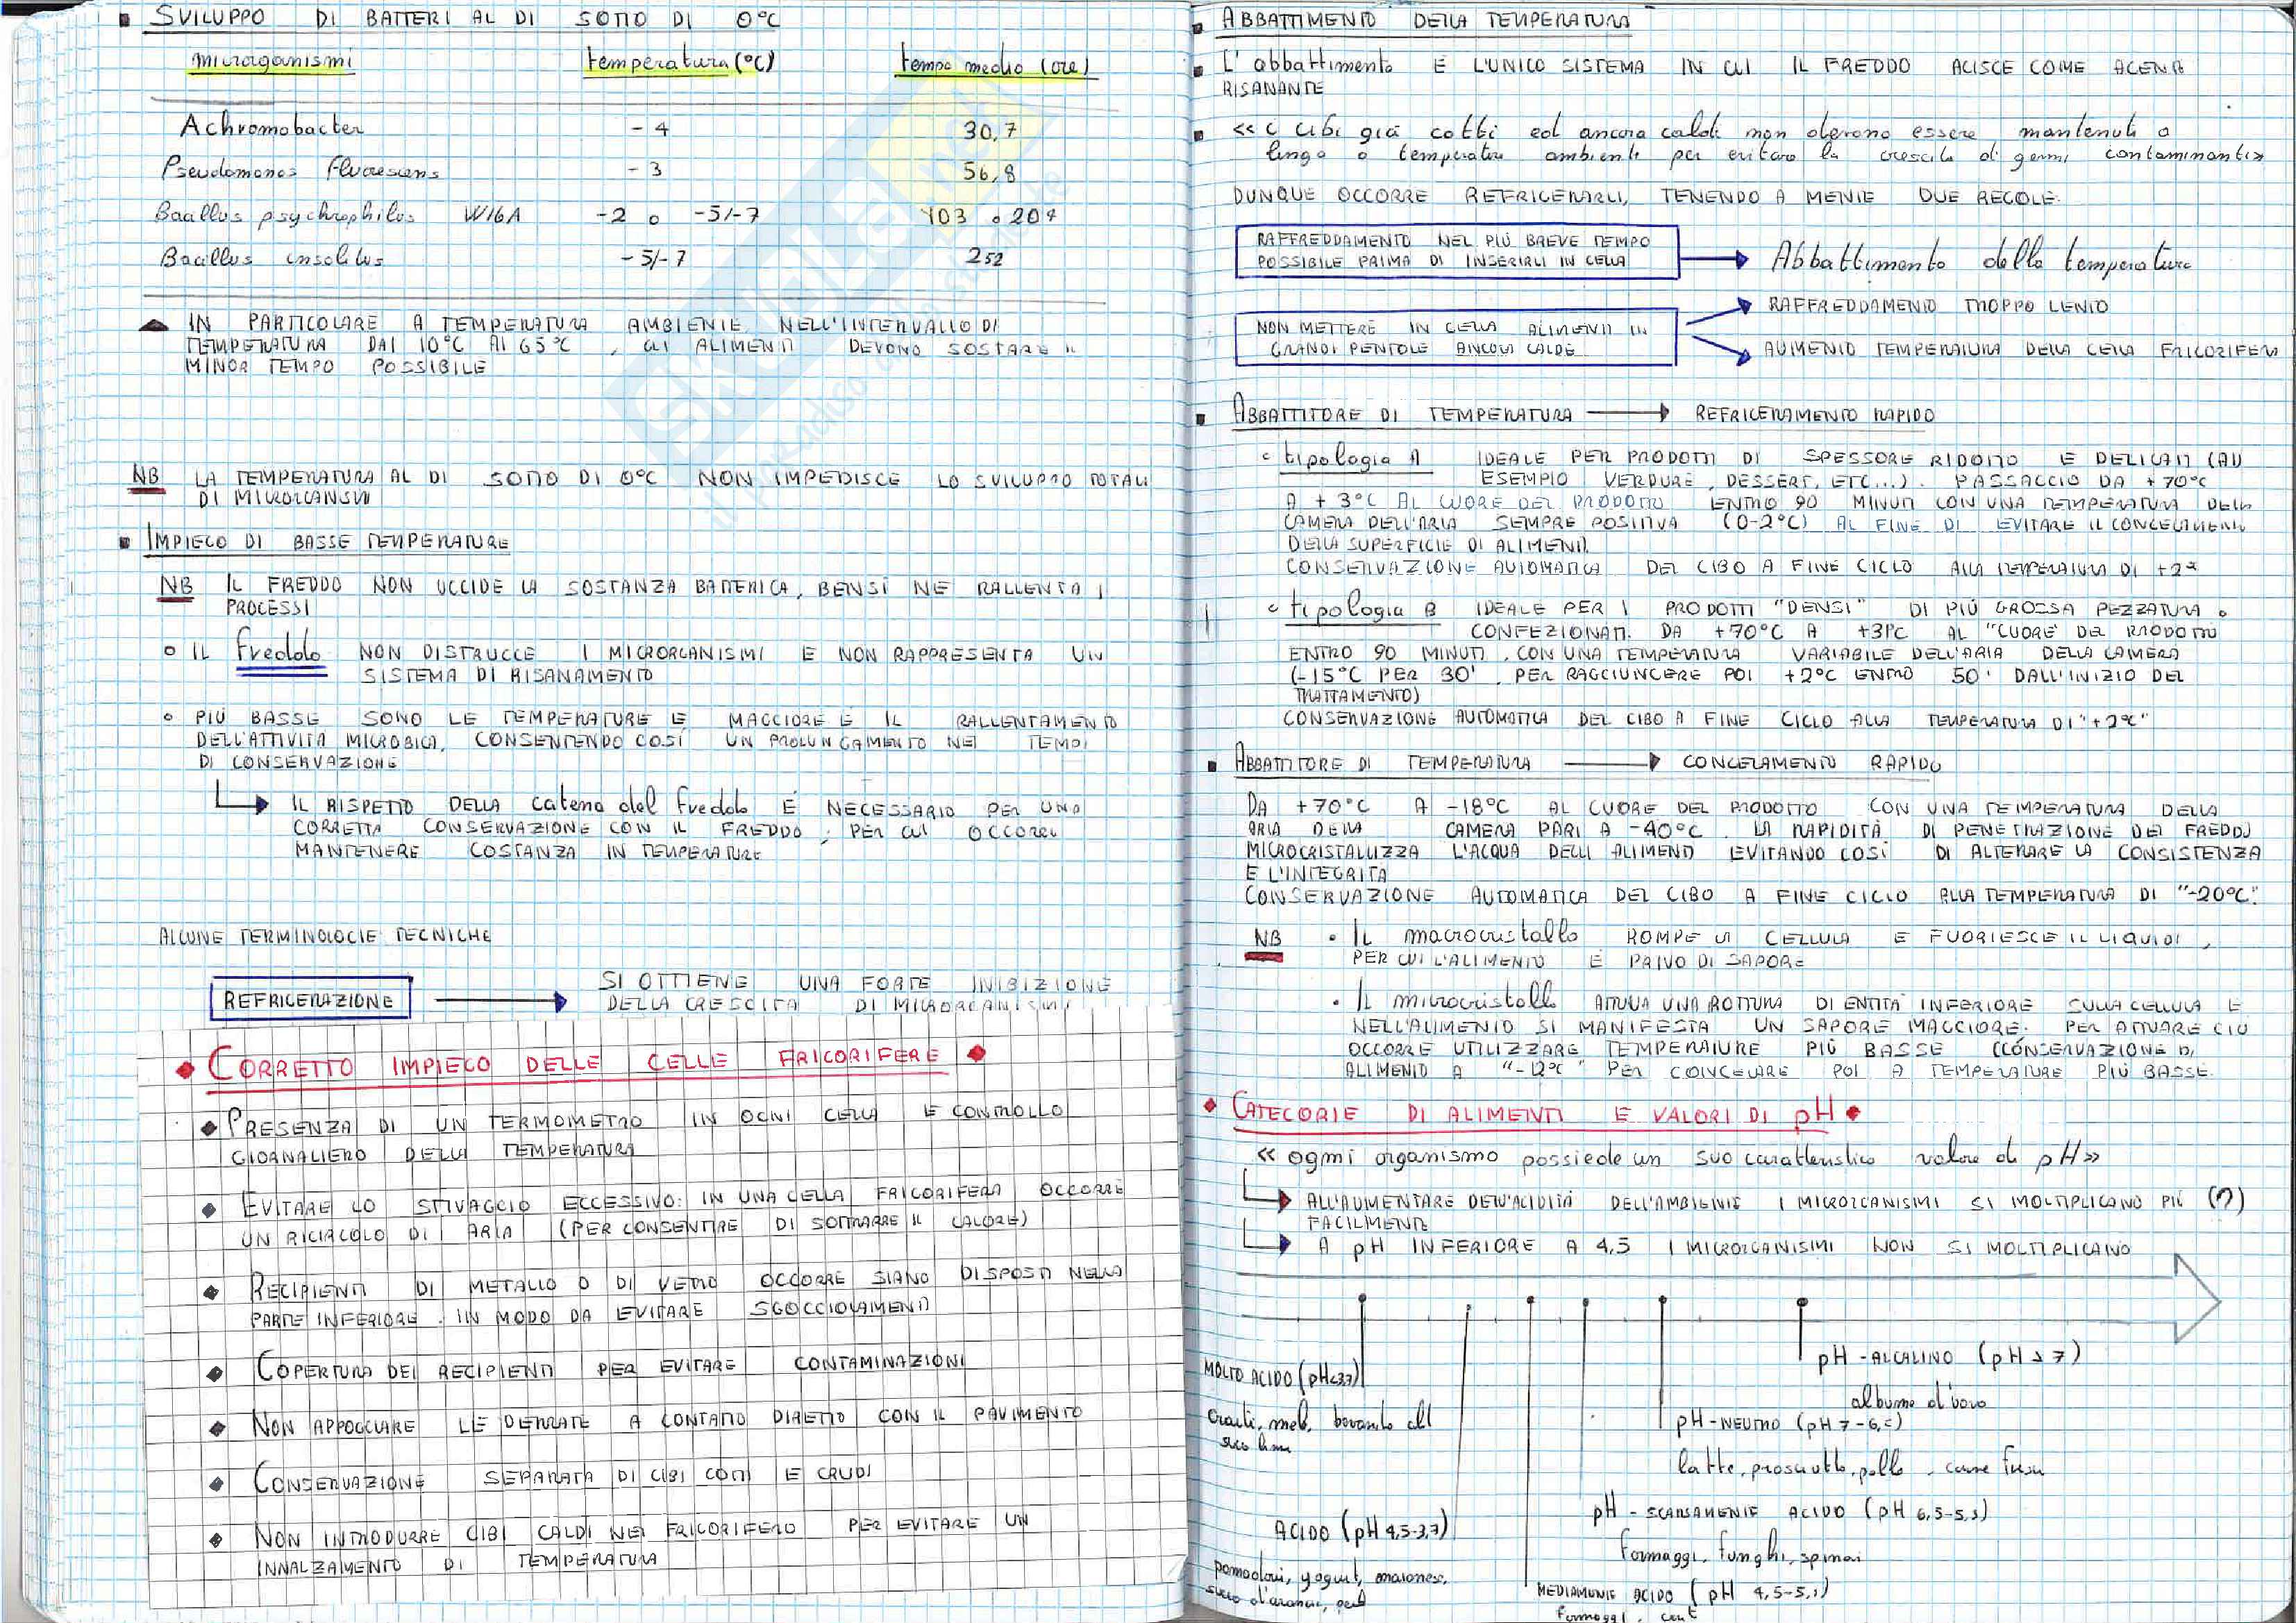 SVILUPPO DI BATTERI AL DI SOTTO DI 0°C
microrganismi temperatura (°C) tempo medio (ore)
Achromobacter -4 30,7
Pseudomonas fluorescens -3 56,8
Bacillus psychrophilus W16A -2 o -5/-7 103 o 204
Bacillus insolitus -5/-7 252
IN PARTICOLARE A TEMPERATURA AMBIENTE NELL'INTERVALLO DI
TEMPERATURA DAI 10°C AI 65°C, GLI ALIMENTI DEVONO SOSTARE IL
MINOR TEMPO POSSIBILE
NB LA TEMPERATURA AL DI SOTTO DI 0°C NON IMPEDISCE LO SVILUPPO TOTALE
DI MICRORGANISMI
IMPIEGO DI BASSE TEMPERATURE
NB IL FREDDO NON UCCIDE LA SOSTANZA BATTERICA, BENSÌ NE RALLENTA I
PROCESSI
IL freddo NON DISTRUGGE I MICRORGANISMI E NON RAPPRESENTA UN
SISTEMA DI RISANAMENTO
PIÙ BASSE SONO LE TEMPERATURE E MAGGIORE È IL RALLENTAMENTO
DELL'ATTIVITÀ MICROBICA, CONSENTENDO COSÌ UN PROLUNGAMENTO NEI TEMPI
DI CONSERVAZIONE
IL RISPETTO DELLA catena del freddo È NECESSARIO PER UNA
CORRETTA CONSERVAZIONE CON IL FREDDO, PER CUI OCCORRE
MANTENERE COSTANZA IN TEMPERATURE
ALCUNE TERMINOLOGIE TECNICHE
REFRIGERAZIONE SI OTTIENE UNA FORTE INIBIZIONE
DELLA CRESCITA DI MICRORGANISMI
CORRETTO IMPIEGO DELLE CELLE FRIGORIFERE
PRESENZA DI UN TERMOMETRO IN OGNI CELLA E CONTROLLO
GIORNALIERO DELLA TEMPERATURA
EVITARE LO STIVAGGIO ECCESSIVO: IN UNA CELLA FRIGORIFERA OCCORRE
UN RICIRCOLO DI ARIA (PER CONSENTIRE DI SOTTRARRE IL CALORE)
RECIPIENTI DI METALLO O DI VETRO OCCORRE SIANO DISPOSTI NELLA
PARTE INFERIORE, IN MODO DA EVITARE SGOCCIOLAMENTI
COPERTURA DEI RECIPIENTI PER EVITARE CONTAMINAZIONI
NON APPOGGIARE LE DERRATE A CONTATTO DIRETTO CON IL PAVIMENTO
CONSERVAZIONE SEPARATA DI CIBI COTTI E CRUDI
NON INTRODURRE CIBI CALDI NEL FRIGORIFERO PER EVITARE UN
INNALZAMENTO DI TEMPERATURA
ABBATTIMENTO DELLA TEMPERATURA
L'abbattimento È L'UNICO SISTEMA IN CUI IL FREDDO AGISCE COME AGENTE
RISANANTE
«i cibi già cotti ed ancora caldi non devono essere mantenuti a
lungo a temperatura ambiente per evitare la crescita di germi contaminanti»
DUNQUE OCCORRE REFRIGERARLI, TENENDO A MENTE DUE REGOLE:
RAFFREDDAMENTO NEL PIÙ BREVE TEMPO
POSSIBILE PRIMA DI INSERIRLI IN CELLA
Abbattimento della temperatura
NON METTERE IN CELLA ALIMENTI IN
GRANDI PENTOLE ANCORA CALDE
RAFFREDDAMENTO TROPPO LENTO
AUMENTO TEMPERATURA DELLA CELLA FRIGORIFERA
ABBATTITORE DI TEMPERATURA REFRIGERAMENTO RAPIDO
tipologia A IDEALE PER PRODOTTI DI SPESSORE RIDOTTO E DELICATI (AD
ESEMPIO VERDURE, DESSERT, ETC...). PASSAGGIO DA +70°C
A +3°C AL CUORE DEL PRODOTTO ENTRO 90 MINUTI CON UNA TEMPERATURA DELLA
CAMERA DELL'ARIA SEMPRE POSITIVA (0-2°C) AL FINE DI EVITARE IL CONGELAMENTO
DELLA SUPERFICIE DI ALIMENTI.
CONSERVAZIONE AUTOMATICA DEL CIBO A FINE CICLO ALLA TEMPERATURA DI +2°
tipologia B IDEALE PER I PRODOTTI "DENSI" DI PIÙ GROSSA PEZZATURA o
CONFEZIONATI. DA +70°C A +3°C AL "CUORE" DEL PRODOTTO
ENTRO 90 MINUTI, CON UNA TEMPERATURA VARIABILE DELL'ARIA DELLA CAMERA
(-15°C PER 30', PER RAGGIUNGERE POI +2°C ENTRO 50' DALL'INIZIO DEL
TRATTAMENTO)
CONSERVAZIONE AUTOMATICA DEL CIBO A FINE CICLO ALLA TEMPERATURA DI "+2°C"
ABBATTITORE DI TEMPERATURA CONGELAMENTO RAPIDO
DA +70°C A -18°C AL CUORE DEL PRODOTTO CON UNA TEMPERATURA DELLA
ARIA DELLA CAMERA PARI A -40°C. LA RAPIDITÀ DI PENETRAZIONE DEL FREDDO
MICROCRISTALLIZZA L'ACQUA DELLI ALIMENTI EVITANDO COSÌ DI ALTERARE LA CONSISTENZA
E L'INTEGRITÀ
CONSERVAZIONE AUTOMATICA DEL CIBO A FINE CICLO ALLA TEMPERATURA DI "-20°C".
NB IL macrocristallo ROMPE LA CELLULA E FUORIESCE IL LIQUIDI,
PER CUI L'ALIMENTO È PRIVO DI SAPORE
IL microcristallo ATTUA UNA ROTTURA DI ENTITÀ INFERIORE SULLA CELLULA E
NELL'ALIMENTO SI MANIFESTA UN SAPORE MAGGIORE. PER ATTUARE CIÒ
OCCORRE UTILIZZARE TEMPERATURE PIÙ BASSE (CONSERVAZIONE DI
ALIMENTO A "-12°C" PER CONGELARE POI A TEMPERATURE PIÙ BASSE.
CATEGORIE DI ALIMENTI E VALORI DI pH
«ogni organismo possiede un suo caratteristico valore di pH»
ALL'AUMENTARE DELL'ACIDITÀ DELL'AMBIENTE I MICRORGANISMI SI MOLTIPLICANO PIÙ (?)
FACILMENTE
A pH INFERIORE A 4,5 I MICRORGANISMI NON SI MOLTIPLICANO
pH-ALCALINO (pH > 7)
albume d'uovo
MOLTO ACIDO (pH<3,7)
Crauti, mele, bevande al
succo
pH-NEUTRO (pH 7-6,5)
latte, prosciutto, pollo, carne fresca
pH-SCARSAMENTE ACIDO (pH 6,5-5,3)
formaggi, funghi, spinaci
ACIDO (pH 4,5-3,7)
pomodori, yogurt, maionese,
succo d'arancia,
MEDIAMENTE ACIDO (pH 4,5-5,3)
formaggi,